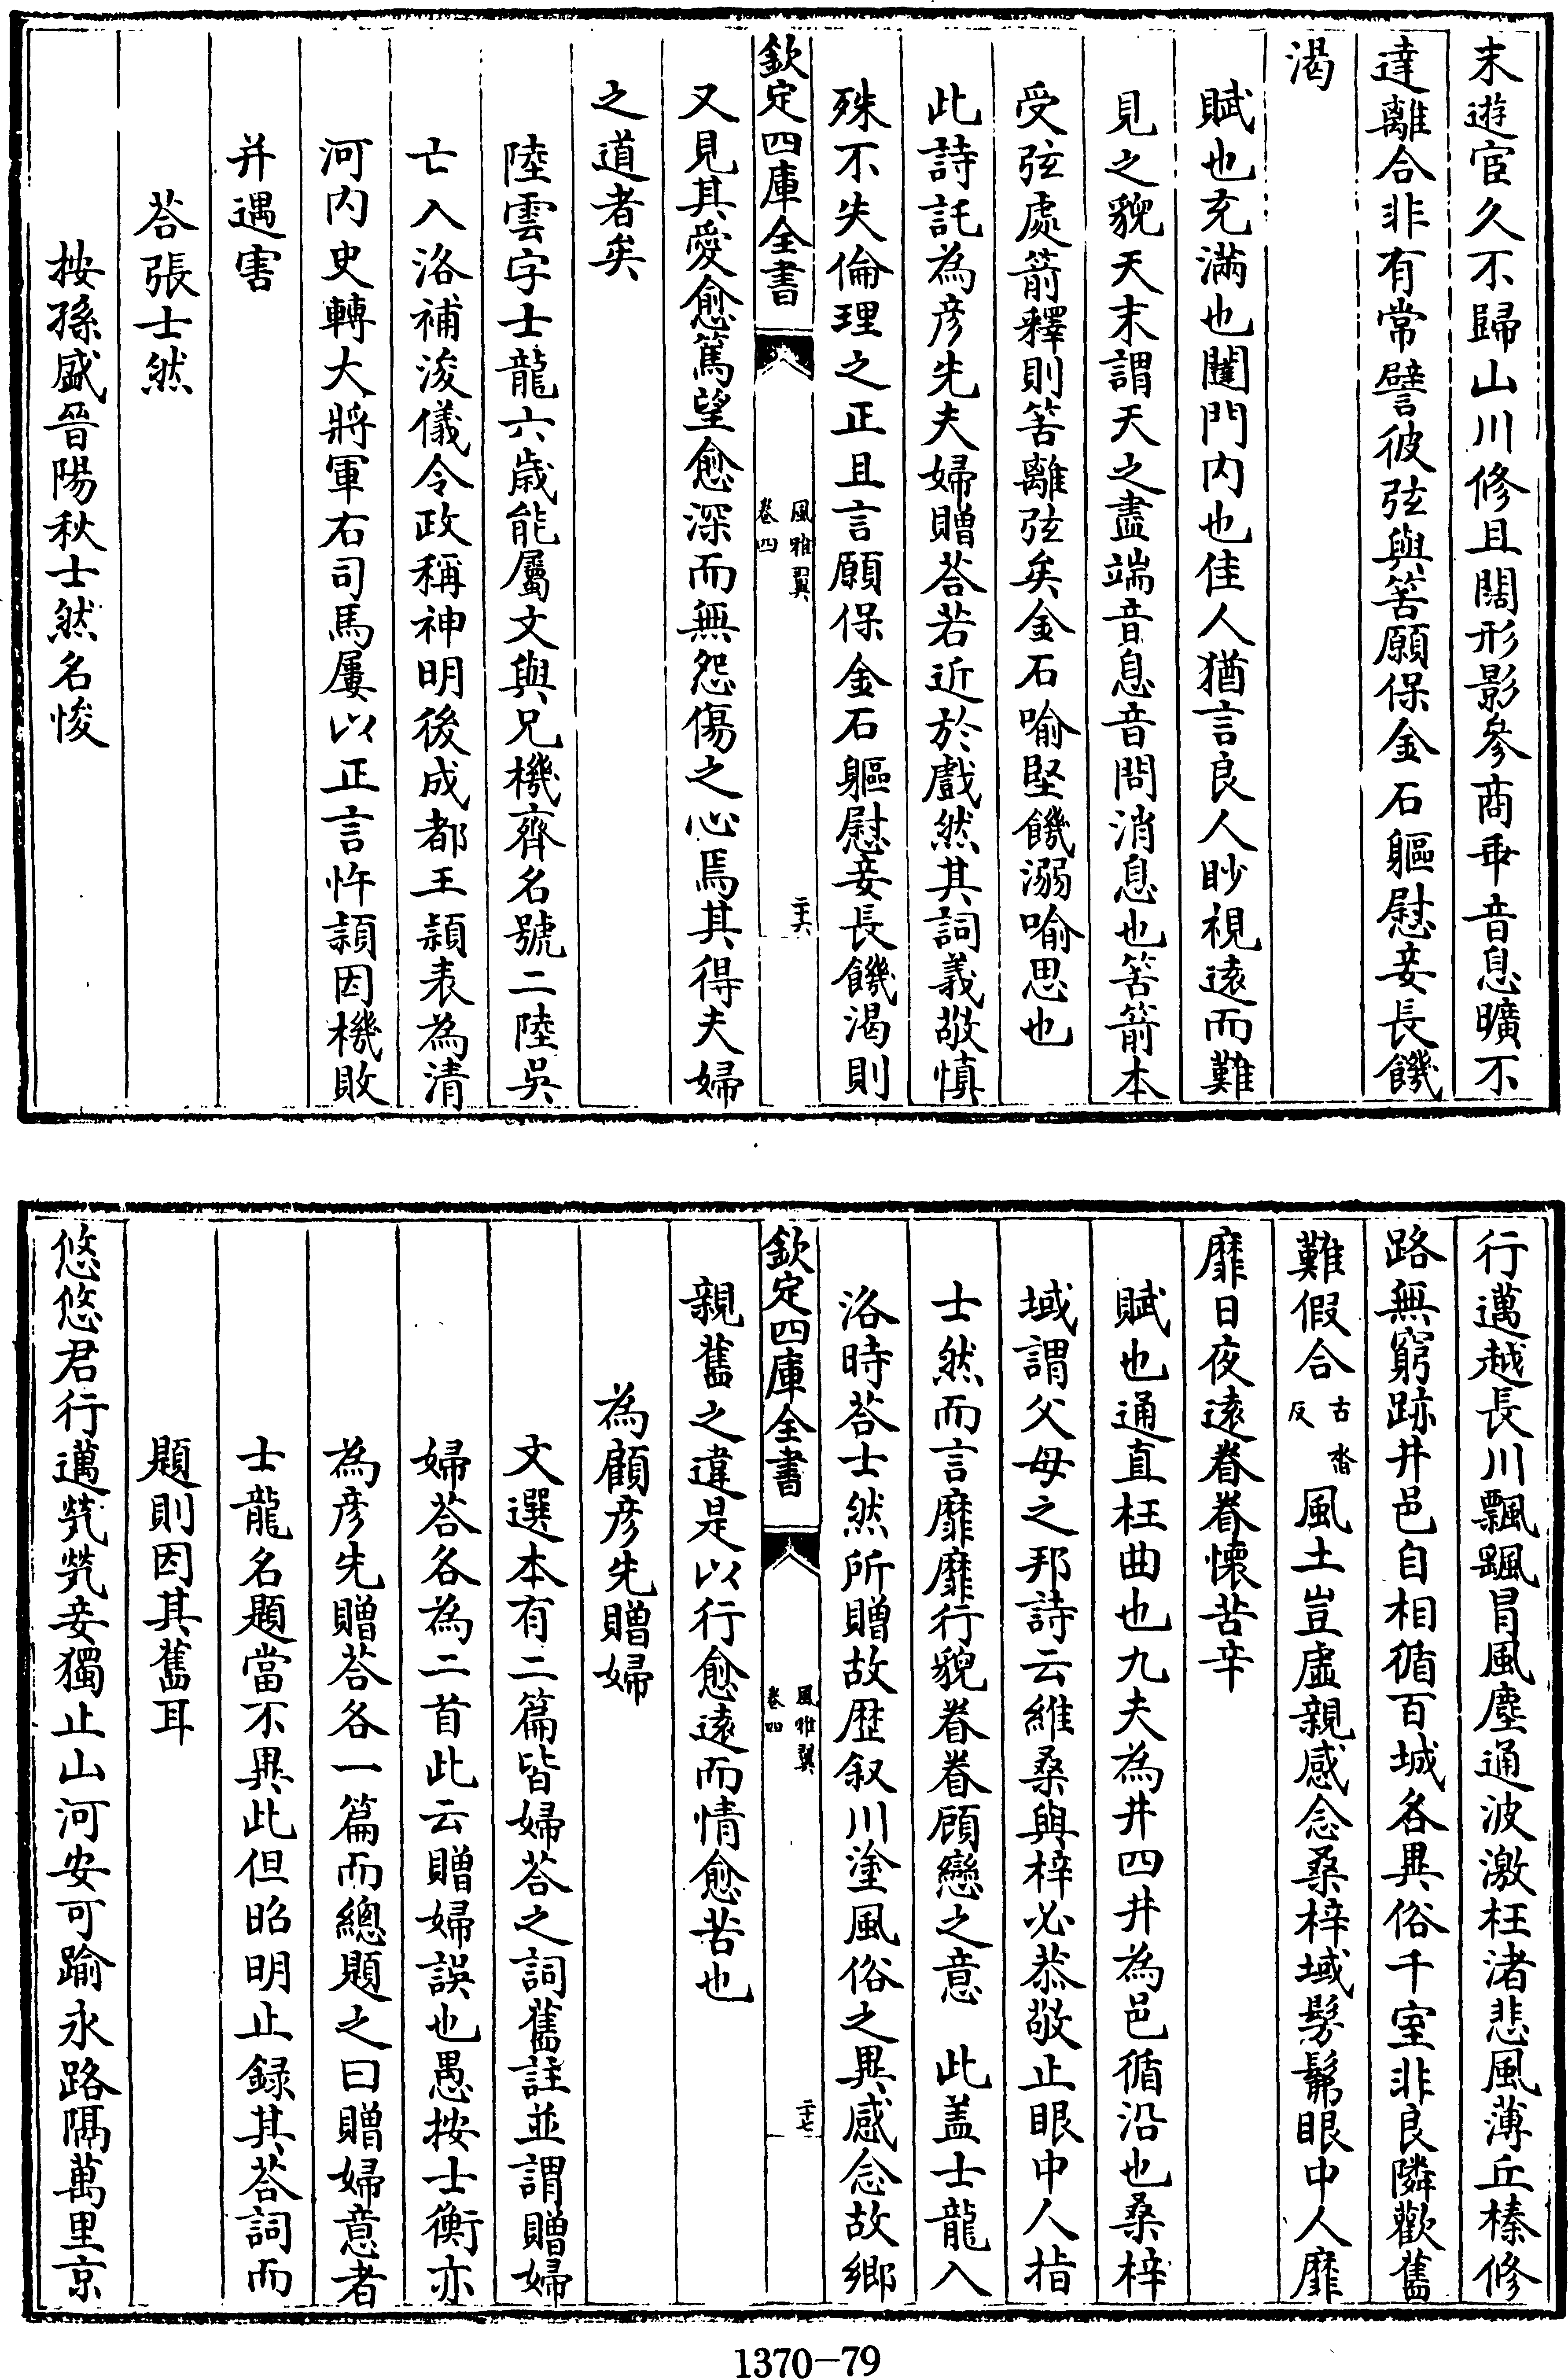 末遊宦久不歸山川修且闊形影參商乖音息曠不
達離合非有常譬彼弦與筈願保金石軀慰妾長饑
渴
賦也充滿也闥門内也佳人猶言良人眇視遠而難
見之貌天末謂天之盡端音息音問消息也筈箭本
受弦處箭釋則筈離弦矣金石喻堅饑溺喻思也
此詩託為彦先夫婦贈荅若近於戲然其詞義敬慎
殊不失倫理之正且言願保金石軀慰妾長饑渴則
欽定四庫全書
風雅翼
卷四
二十六
又見其愛愈篤望愈深而無怨傷之心焉其得夫婦
之道者矣
陸雲字士龍六歲能屬文與兄機齊名號二陸吳
亡入洛補浚儀令政稱神明後成都王頴表為清
河内史轉大將軍右司馬屢以正言忤頴因機敗
并遇害
荅張士然
按孫盛晉陽秋士然名悛
行邁越長川飄颻冒風塵通波激枉渚悲風薄丘榛修
路無窮跡井邑自相循百城各異俗千室非良隣歡舊
難假合古沓反風土豈虛親感念桑梓域髣髴眼中人靡
靡日夜遠眷眷懷苦辛
賦也通直枉曲也九夫為井四井為邑循沿也桑梓
域謂父母之邦詩云維桑與梓必恭敬止眼中人指
士然而言靡靡行貌眷眷顧戀之意　此盖士龍入
洛時荅士然所贈故歴叙川塗風俗之異感念故鄉
欽定四庫全書
風雅翼
卷四
二十七
親舊之違是以行愈遠而情愈苦也
為顧彦先贈婦
文選本有二篇皆婦荅之詞舊註並謂贈婦
婦荅各為二首此云贈婦誤也愚按士衡亦
為彦先贈荅各一篇而總題之曰贈婦意者
士龍名題當不異此但昭明止録其荅詞而
題則因其舊耳
悠悠君行邁煢煢妾獨止山河安可踰永路隔萬里京
1370—79